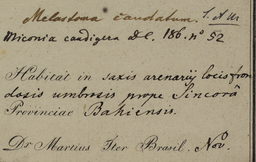 Melastoma caudatum.
Miconia caudigera DC. 186. nº 52
Habitat in saxis arenariis locis fron
dosis umbrosis prope Sincorâ
Provinciae Bahiensis.
Dr Martius Iter Brasil. Nov.